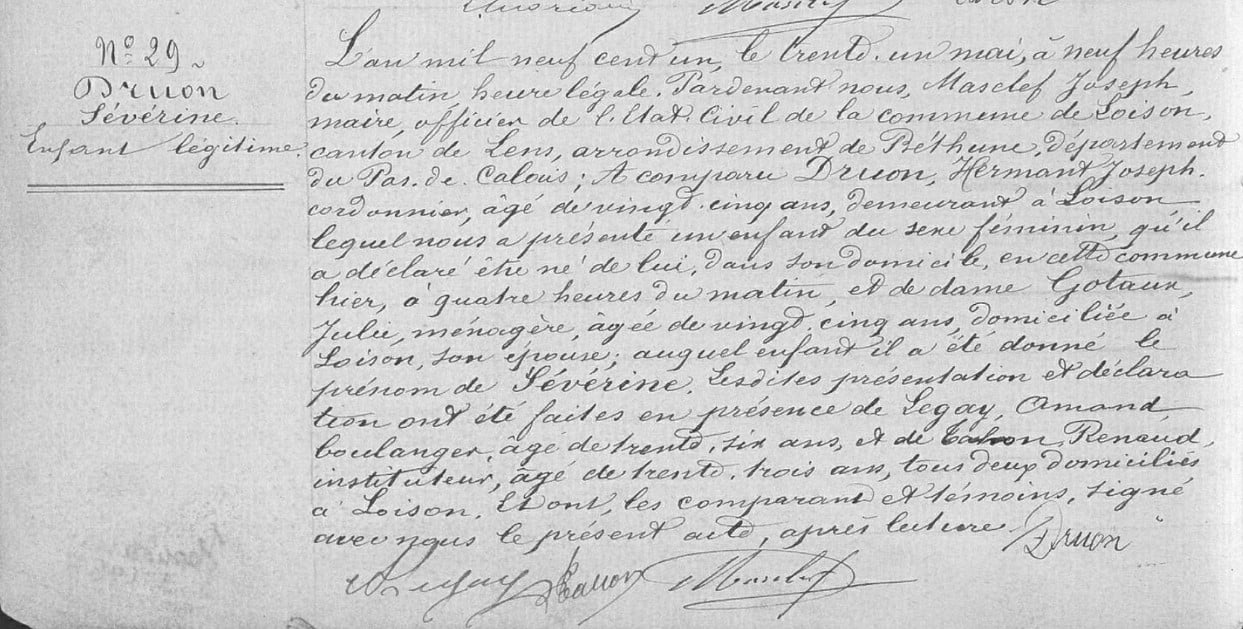 Nº 29
Druon
Sévérine.
Enfant légitime.
L'an mil neuf cent un, le trente-un mai, à neuf heures
du matin heure légale. Pardevant nous, Masclef Joseph,
maire, officier de l'Etat-Civil de la commune de Loison,
canton de Lens, arrondissement de Béthune, département
du Pas-de-Calais; A comparu Druon, Hermant Joseph.
cordonnier, âgé de vingt-cinq ans, demeurant à Loison
lequel nous a présenté un enfant du sexe féminin, qu'il
a déclaré être né de lui, dans son domicile, en cette commune
hier, à quatre heures du matin, et de dame Gotaux,
Julie, ménagère, âgée de vingt-cinq ans, domiciliée à
Loison, son épouse; auquel enfant il a été donné le
prénom de Sévérine. Lesdites présentation et déclara
tion ont été faites en présence de Legay, Amand,
boulanger, âgé de trente-six ans, et de Renaud,
instituteur, âgé de trente-trois ans, tous deux domiciliés
à Loison. Et ont, les comparant et témoins, signé
avec nous le présent acte, après lecture. Druon
Legay Masclef